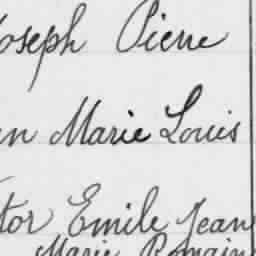 Joseph Pierre
en Marie Louis
tor Emile Jean
Marie Romain